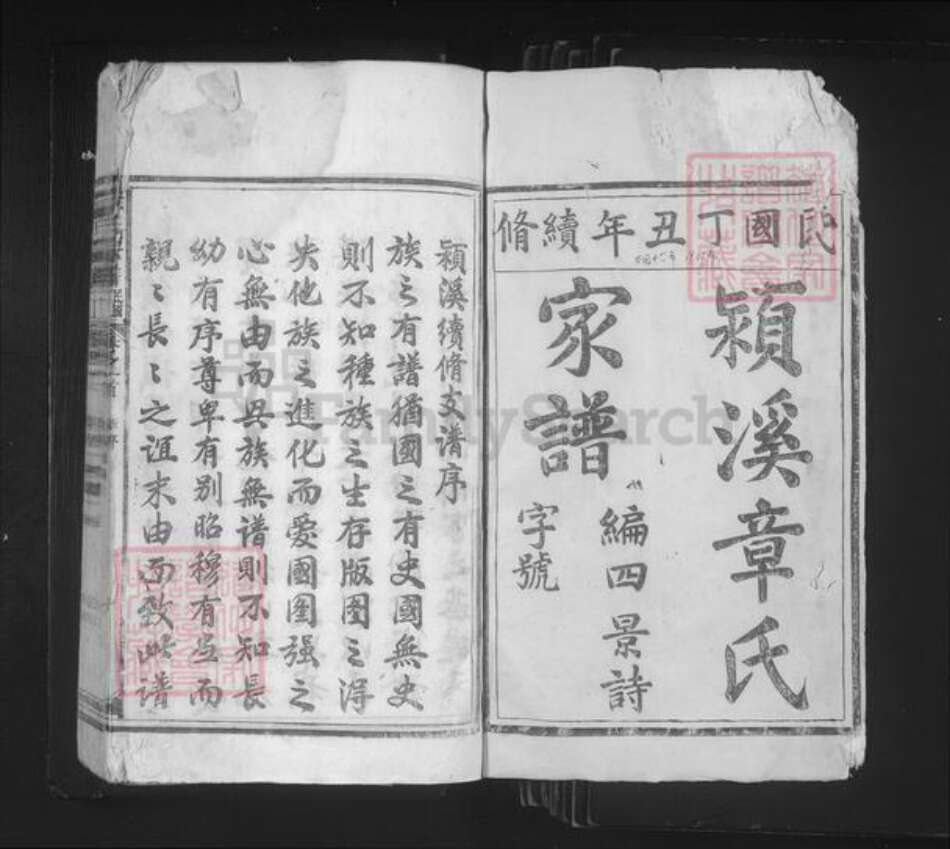 民國丁丑年續脩
潁溪章氏
家譜
編四景詩
字號
潁溪續脩支譜序
族之有譜猶國之有史國無史
則不知種族之生存版圖之得
失他族之進化而愛國圖强之
心無由而興族無譜則不知長
幼有序尊卑有别昭穆有並而
親〻長〻之誼末由而致此譜
FamilySearch